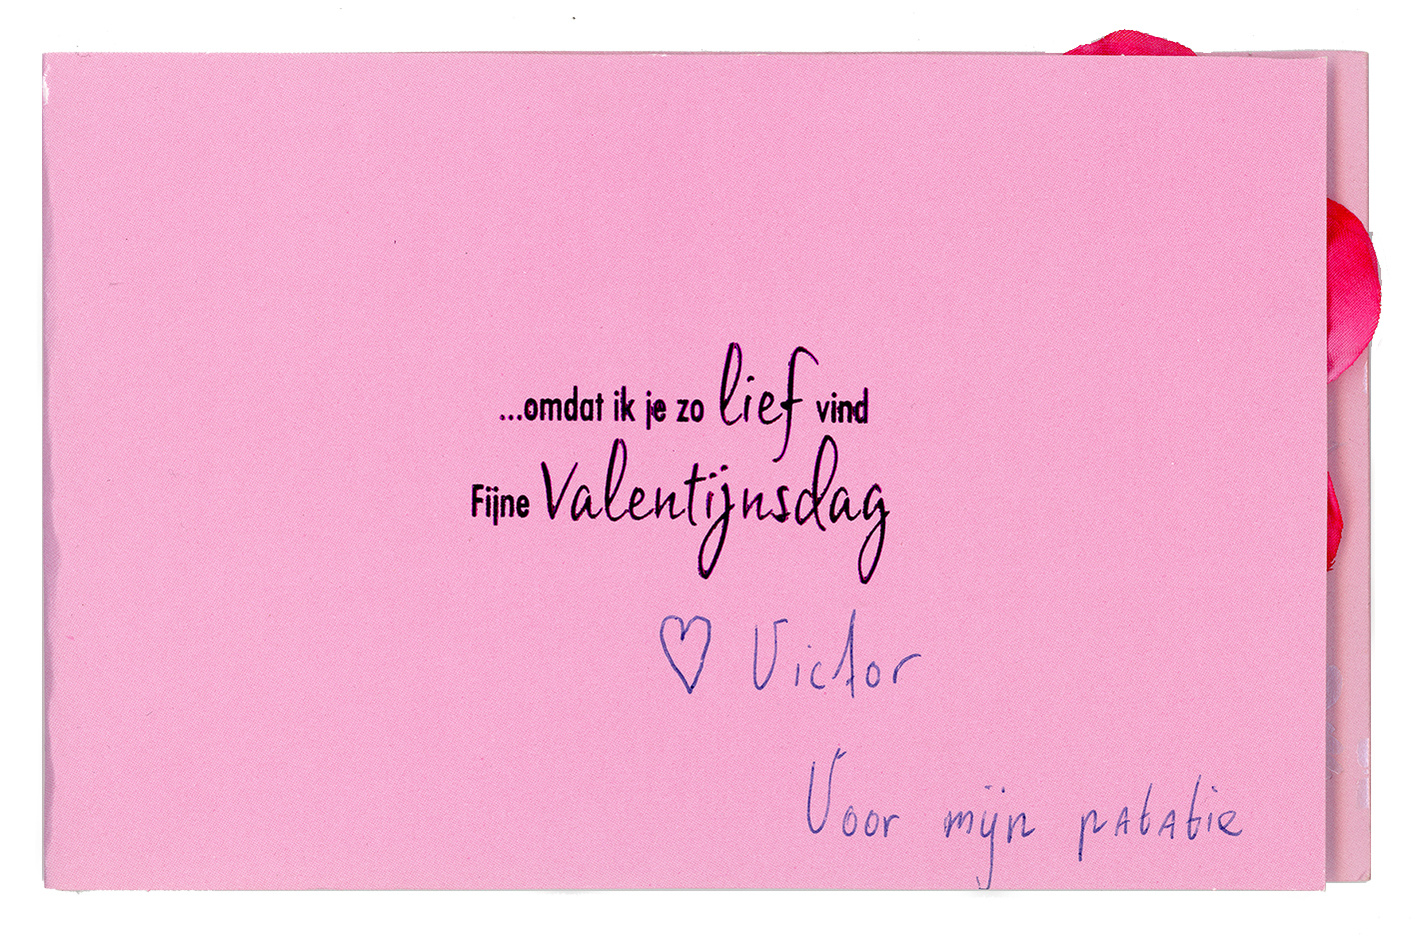 ...omdat ik je zo lief vind
Fijne Valentijnsdag
♡ Victor
Voor mijn patatie